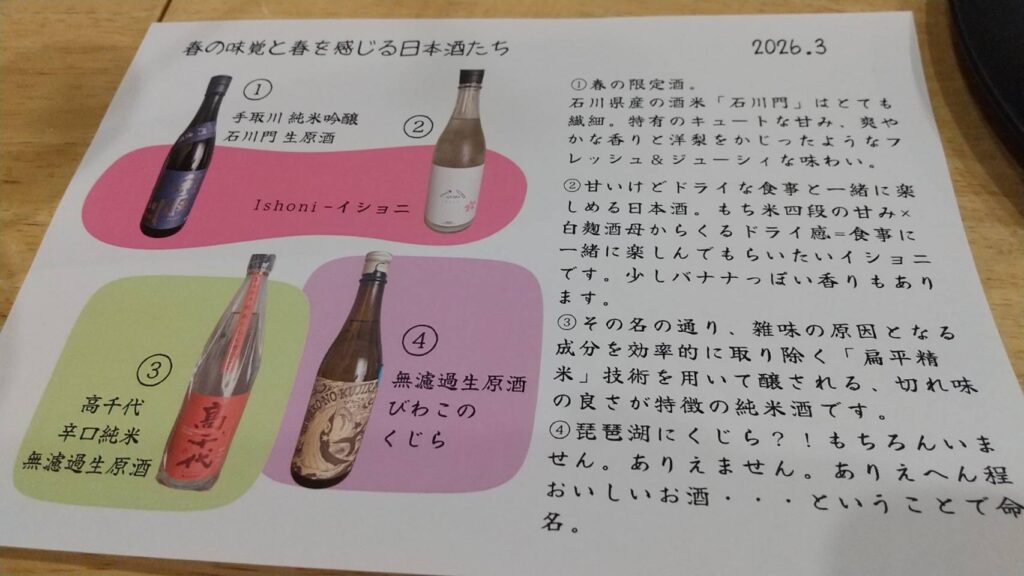 春の味覚と春を感じる日本酒たち
2026.3
①
手取川 純米吟醸
石川門 生原酒
②
Ishoni-イショニ
③
高千代
辛口純米
無濾過生原酒
高千代
④
無濾過生原酒
びわこの
くじら
①春の限定酒。
石川県産の酒米「石川門」はとても
繊細。特有のキュートな甘み、爽や
かな香りと洋梨をかじったようなフ
レッシュ&ジューシィな味わい。
②甘いけどドライな食事と一緒に楽
しめる日本酒。もち米四段の甘み×
白麹酒母からくるドライ感=食事に
一緒に楽しんでもらいたいイショニ
です。少しバナナっぽい香りもあり
ます。
③その名の通り、雑味の原因となる
成分を効率的に取り除く「扁平精
米」技術を用いて醸される、切れ味
の良さが特徴の純米酒です。
④琵琶湖にくじら?!もちろんいま
せん。ありえません。ありえへん程
おいしいお酒・・・ということで命
名。